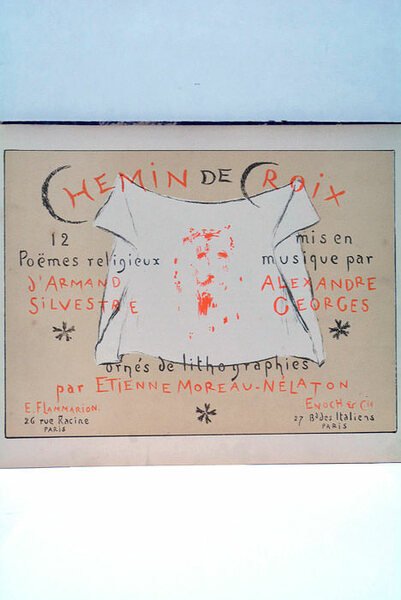 CHEMIN DE CROIX
12
Poëmes religieux
D'ARMAND
SILVESTRE
mis en
musique par
ALEXANDRE
GEORGES
ornés de lithographies
par ETIENNE MOREAU-NÉLATON
E. FLAMMARION.
26 rue Racine
PARIS
ENOCH & Cie
27 Bd des Italiens
PARIS